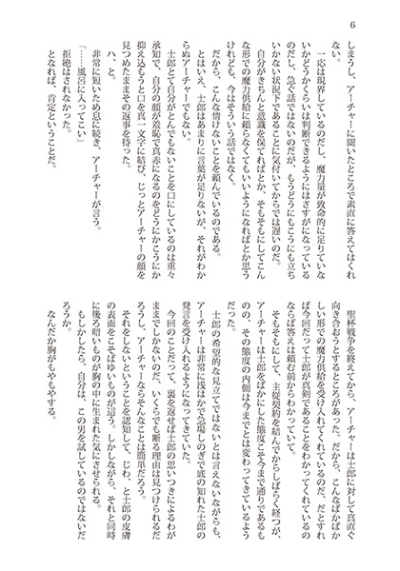 6
しまうし、アーチャーに聞いたところで素直に答えてはくれ
ない。
一応は現界しているのだし、魔力量が致命的に足りていな
いかどうかくらいは判断できるようにはさすがになっている
のだし、急ぐ話ではないのだが、もうどうにもこうにも立ち
いかない状況下であることに気付いてからでは遅いのだ。
自分がきちんと意識を保てればとか、そもそもにしてこん
な形での魔力供給に頼らなくてもいいようになればとか思う
けれども、今はそういう話ではなく。
だから、こんな情けないことを頼んでいるのである。
とはいえ、士郎はあまりに言葉が足りないが、それがわか
らぬアーチャーでもない。
士郎とて自分がとんでもないことを口にしているのは重々
承知で、自分の顔が羞恥で真赤になるのをどうにかこうにか
抑え込もうと口を真一文字に結び、じっとアーチャーの顔を
見つめたままその返事を待った。
ハ、と。
非常に短いため息に続き、アーチャーが言う。
「……風呂に入ってこい」
拒絶はされなかった。
となれば、肯定ということだ。
聖杯戦争を終えてから、アーチャーは士郎に対して真直ぐ
向き合おうとするところがあった。だから、こんなばかばか
しい形での魔力供給を受け入れてくれているのだ、だとすれ
ば今回だって士郎が真剣であることをわかってくれているの
ならば答えは頼む前からわかっていて。
そもそもにして、主従契約を結んでからしばらく経つが、
アーチャーは士郎をばかにした態度こそ今まで通りであるも
のの、その態度の内側は今までとは変わってきているよう
だった。
士郎の希望的な見立てではないとは言えないながらも、
アーチャーは非常に浅はかで急場しのぎで底の知れた士郎の
発言を受け入れるようになってきていた。
今回のことだって、裏を返せば士郎の思いつきによるわが
ままでしかないのだ。いくらでも断る理由は見つけられるだ
ろうし、アーチャーなら そんなことは簡単だろう。
それをしないということを認知して、じわ、と士郎の皮膚
の表面をこそばゆいものが這う。しかしながら、それと同時
に後ろ暗いものが胸の中に生まれた気にさせられる。
もしかしたら、自分は、この男を試しているのではないだ
ろうか。
なんだか胸がもやもやする。